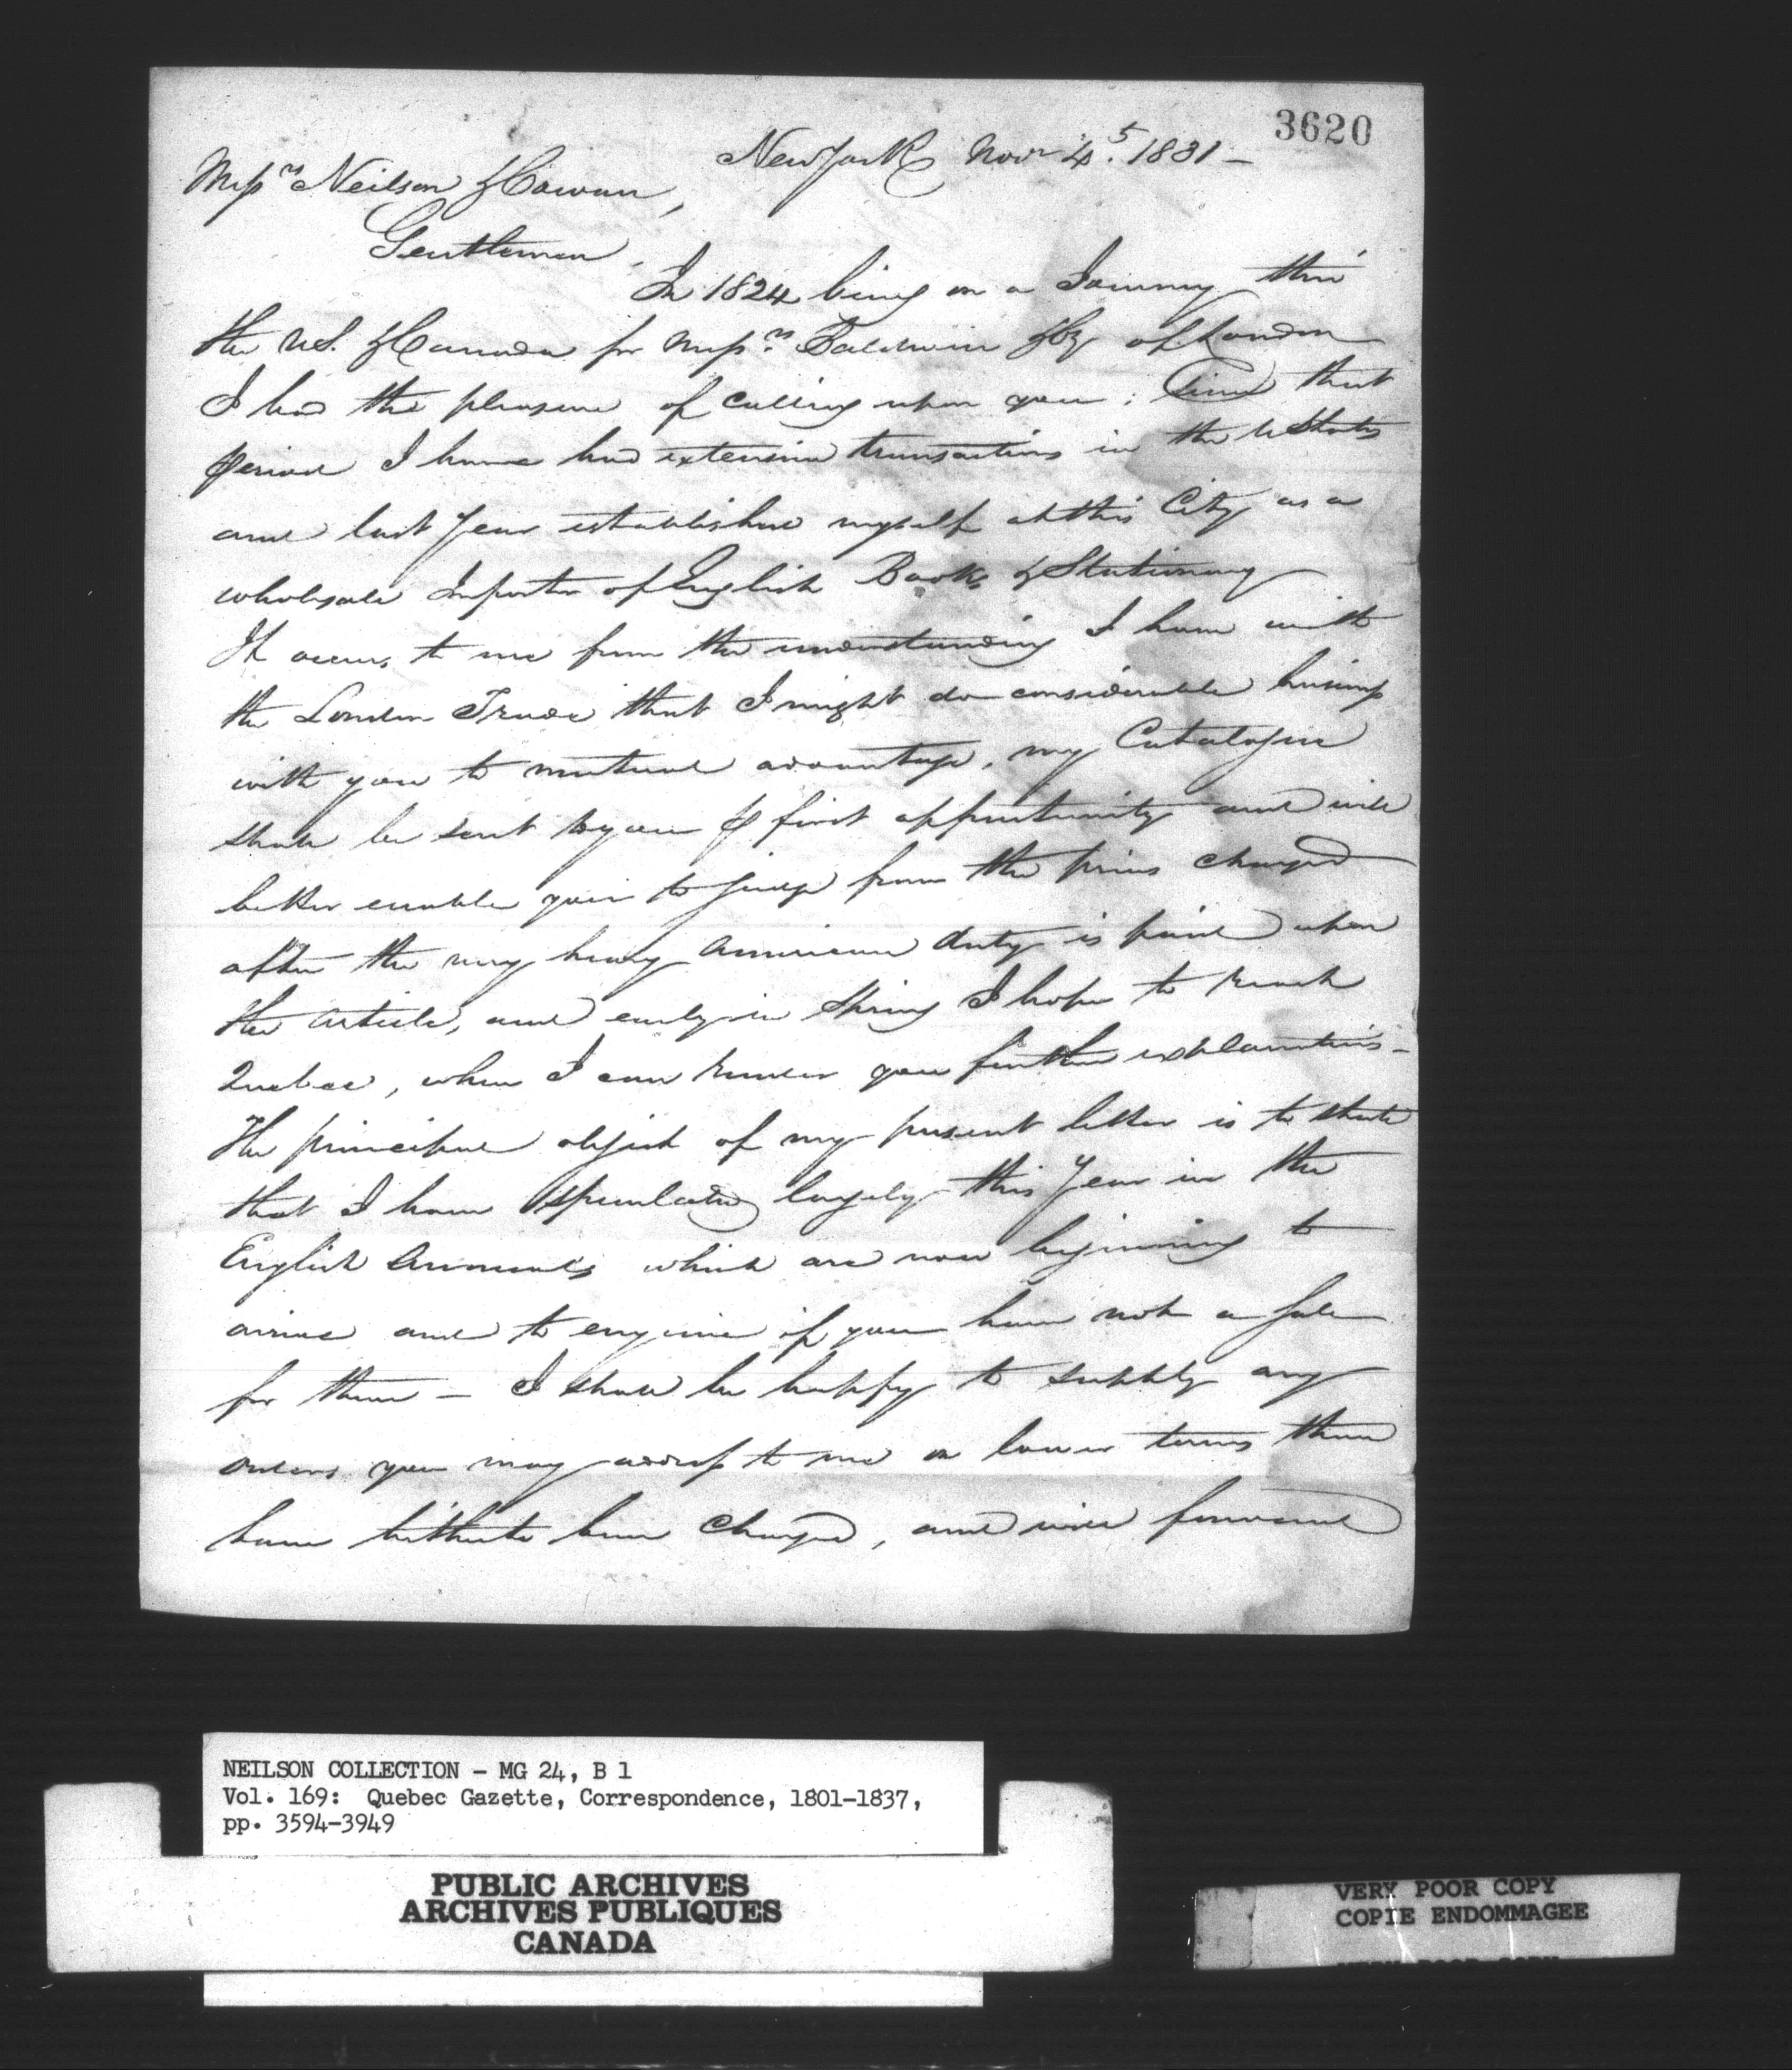 3620
New York Novr 4 5. 1831 –
Messrs Neilson & Cowan,
Gentlemen,
In 1824 being on a Journey thro'
the U.S. & Canada for Messrs. Baldwin & Co of London
I had the pleasure of calling upon you; Since that
period I have had extensive transactions in the U States
and last Year established myself at this City as a
wholesale Importer of English Books & Stationary
It occurs to me from the understanding I have with
the London Trade that I might do considerable business
with you to mutual advantage, my Catalogue
shall be sent to you P first opportunity and will
better enable you to judge from the prices charged
after the very heavy American duty is paid upon
the article, and early in Spring I hope to reach
Quebec, when I can render you further explanations –
The principal object of my present letter is to state
that I have speculated largely this Year in the
English Annuals which are now beginning to
arrive and to enquire if you have not a sale
for them – I shall be happy to supply any
orders you may address to me on lower terms than
have hitherto been charged, and will forward
NEILSON COLLECTION - MG 24, B 1
Vol. 169: Quebec Gazette, Correspondence, 1801-1837,
pp. 3594-3949
PUBLIC ARCHIVES
ARCHIVES PUBLIQUES
CANADA
VERY POOR COPY
COPIE ENDOMMAGEE
VERY POOR COPY